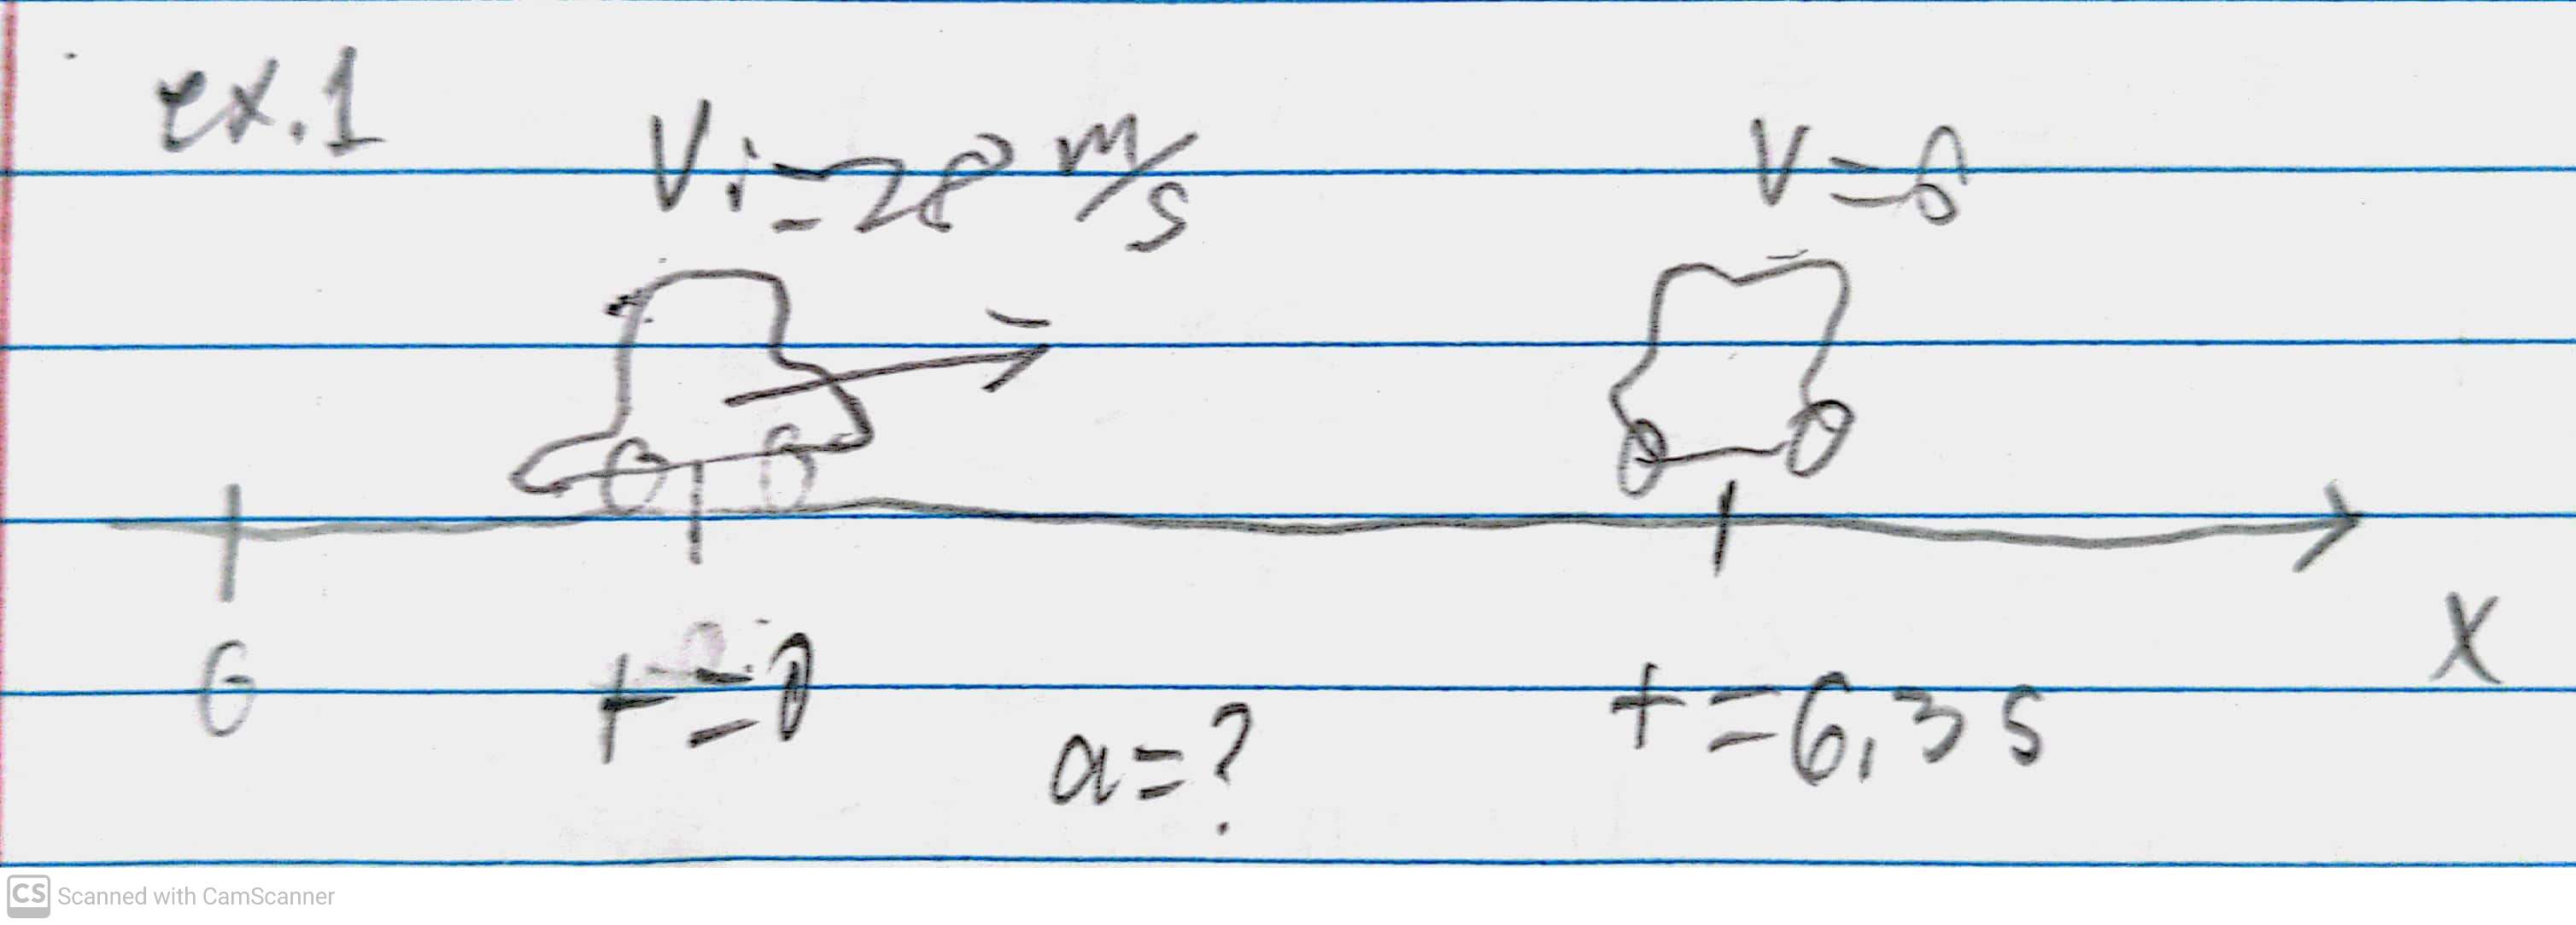 ex.1
Vi=28 m/s
V=0
0
t=0
a=?
t=6,3 s
X
CS Scanned with CamScanner